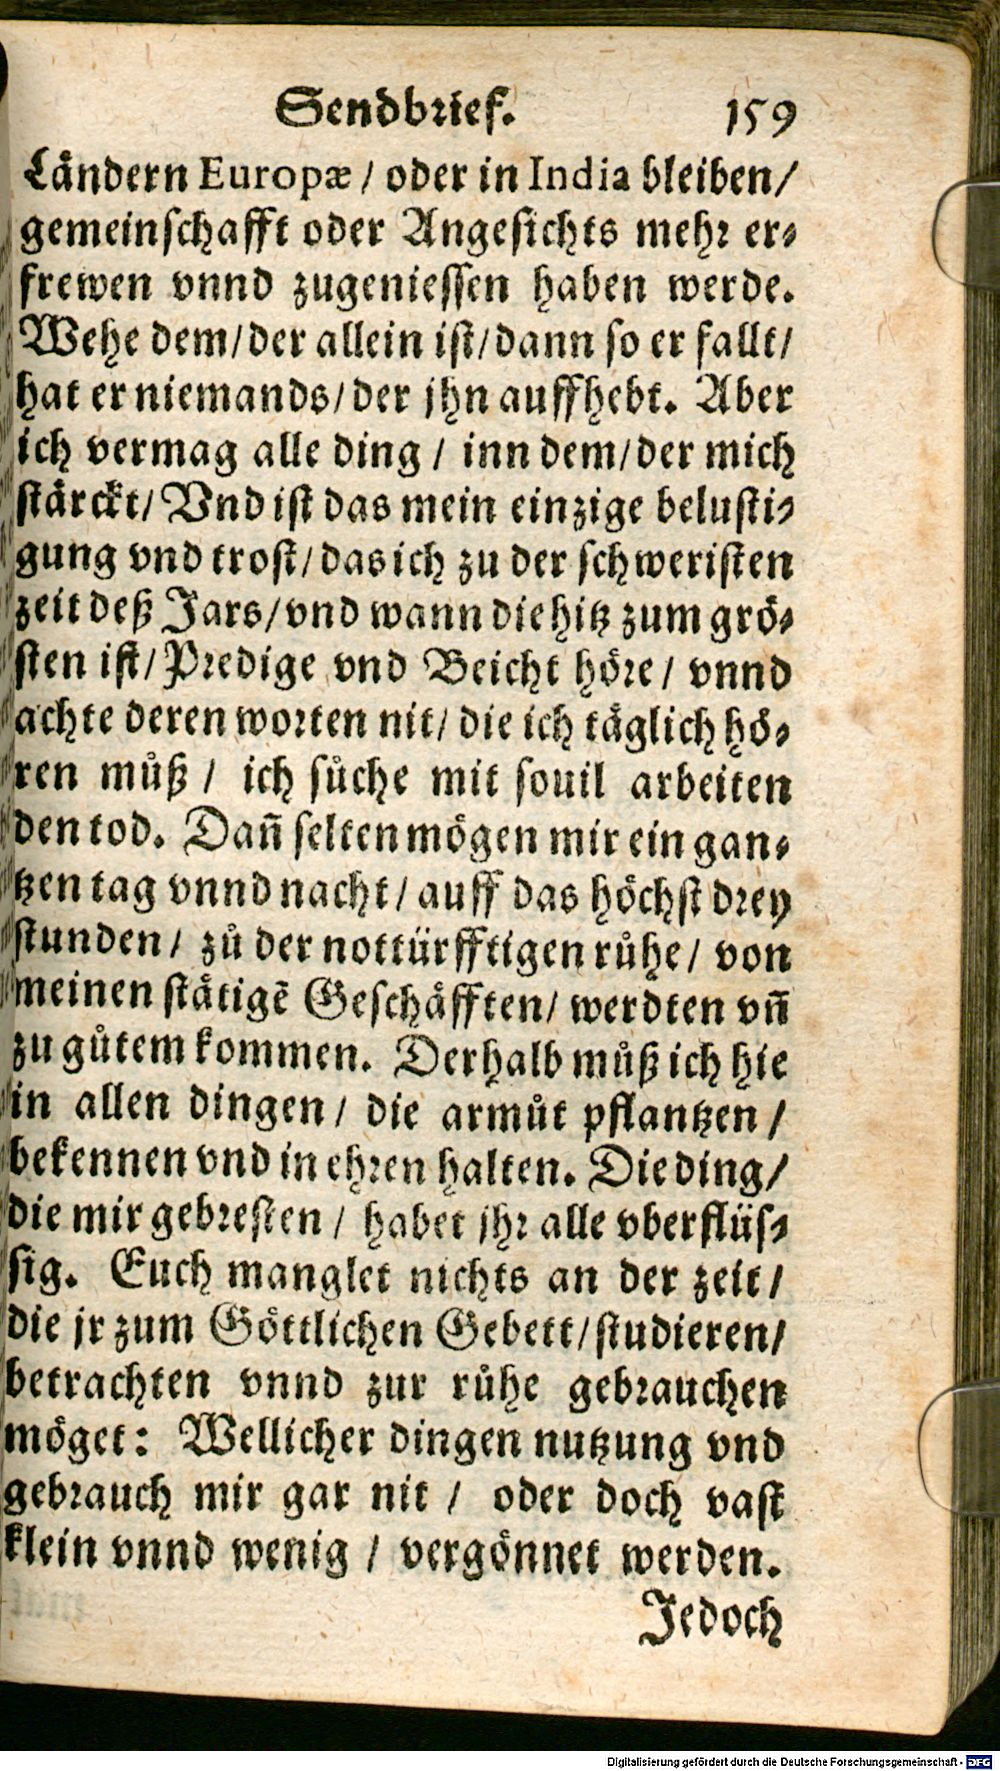 Sendbrief. 159
Ländern Europæ / oder in India bleiben /
gemeinschafft oder Angesichts mehr er-
frewen vnnd zugeniessen haben werde.
Wehe dem/der allein ist/dann so er fallt/
hat er niemands/der jhn auffhebt. Aber
ich vermag alle ding / inn dem/der mich
stärckt/ Vnd ist das mein einzige belusti-
gung vnd trost/das ich zu der schweristen
zeit deß Jars/vnd wann die hitz zum grö-
sten ist/ Predige vnd Beicht höre / vnnd
achte deren worten nit/ die ich täglich hö-
ren můß / ich sůche mit souil arbeiten
den tod. Dañ selten mögen mir ein gan-
tzen tag vnnd nacht / auff das höchst drey
stunden / zů der nottürfftigen růhe / von
meinen stätigẽ Geschäfften/ werdten vñ
zu gůtem kommen. Derhalb můß ich hie
in allen dingen / die armůt pflantzen /
bekennen vnd in ehren halten. Die ding/
die mir gebresten / habet jhr alle vberflüs-
sig. Euch manglet nichts an der zeit /
die jr zum Göttlichen Gebett/studieren/
betrachten vnnd zur růhe gebrauchen
möget: Wellicher dingen nutzung vnd
gebrauch mir gar nit / oder doch vast
klein vnnd wenig / vergönnet werden.
Jedoch
Digitalisierung gefördert durch die Deutsche Forschungsgemeinschaft - DFG